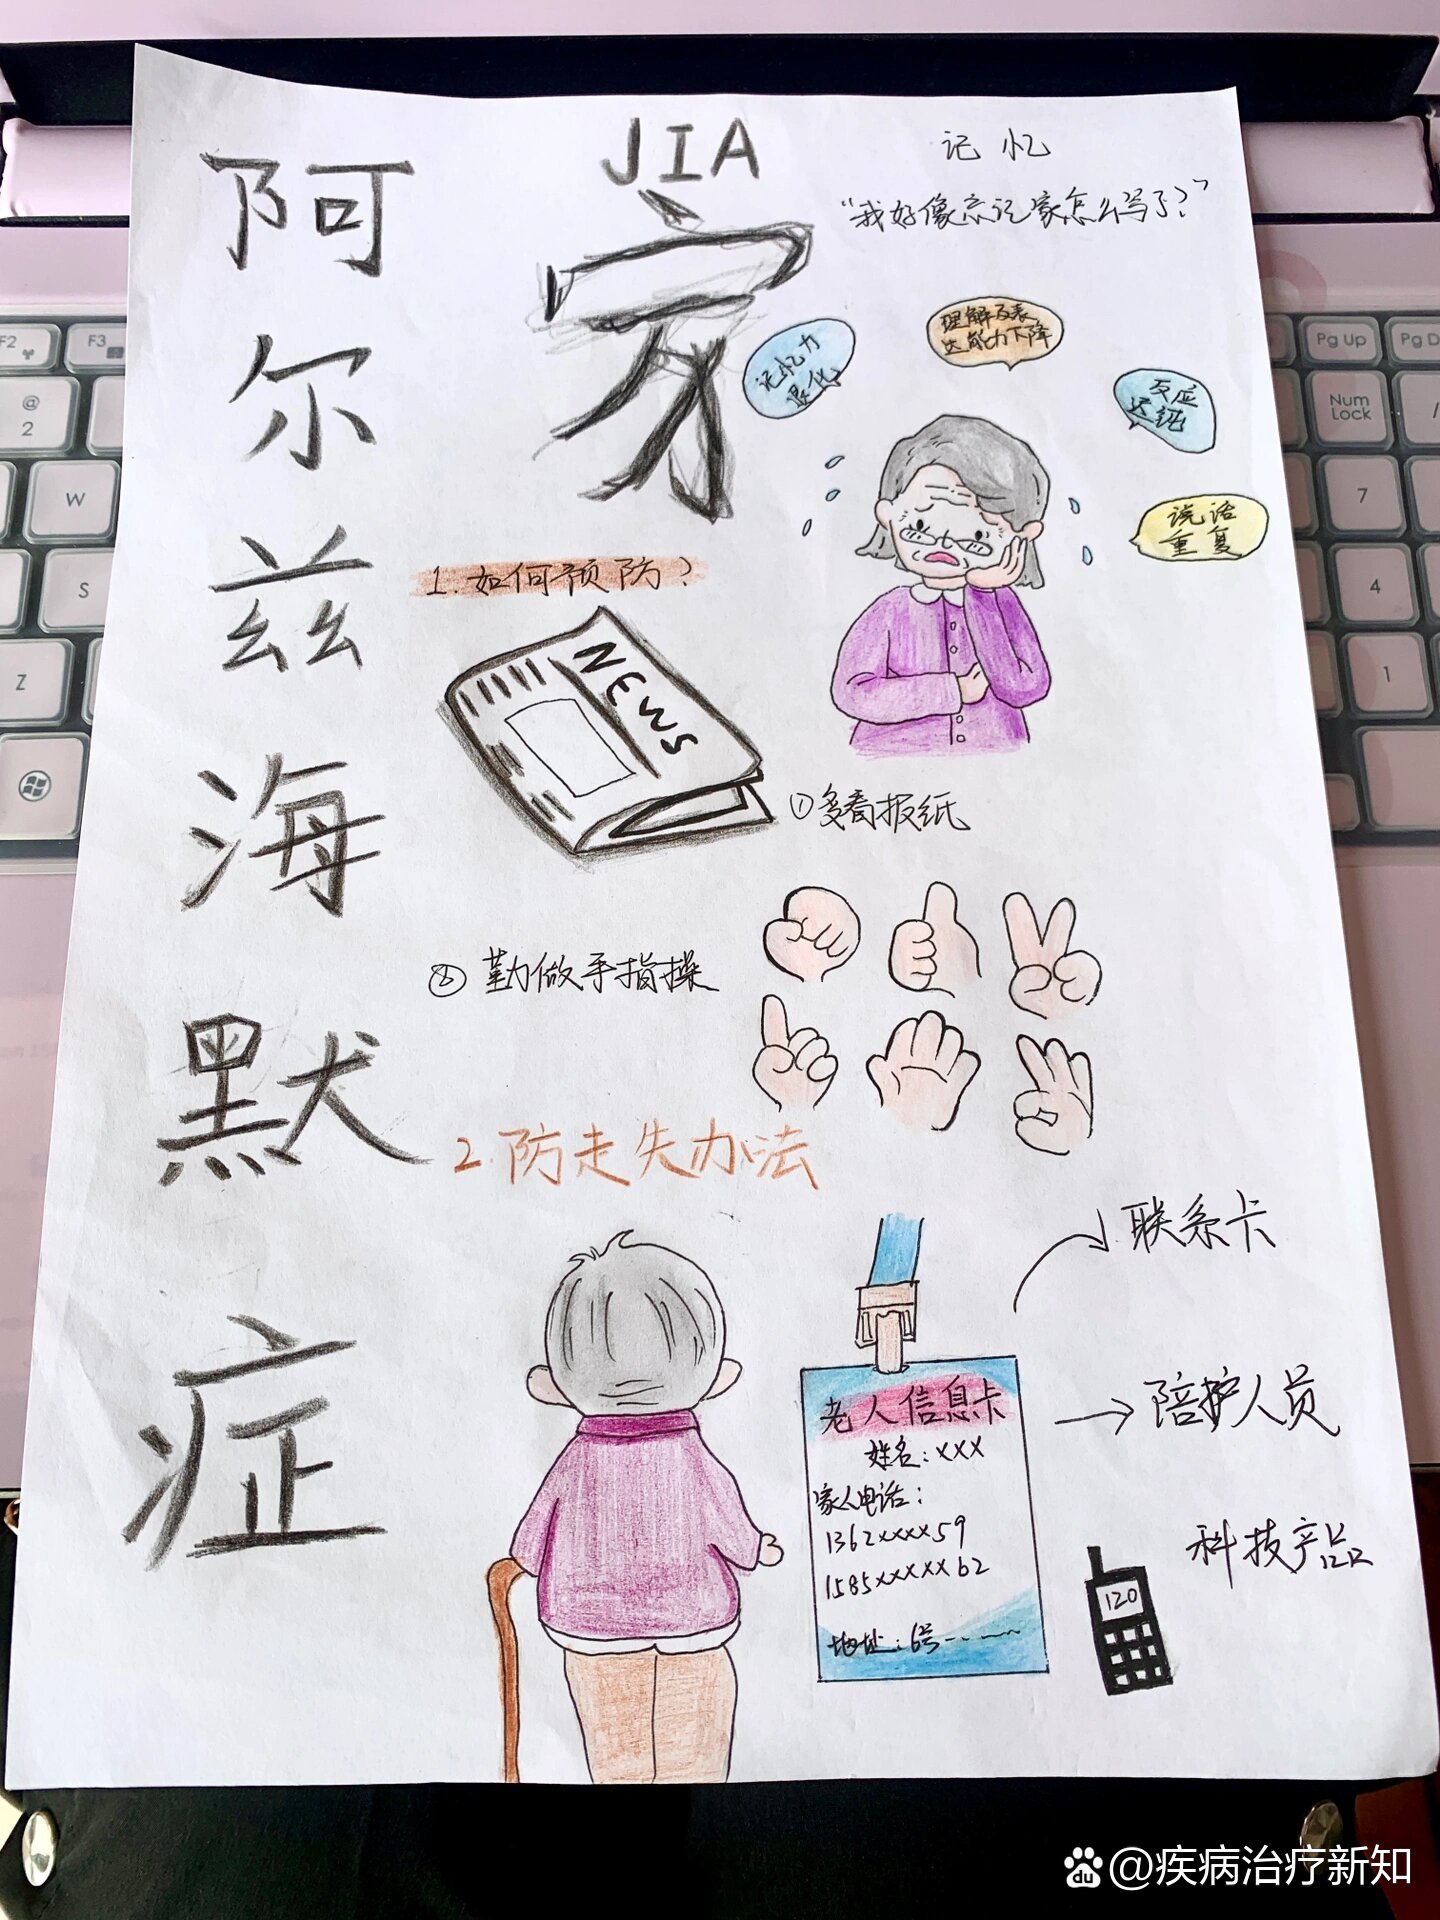 阿尔兹海默症
JIA
记忆
“我好像忘记家怎么写了?”
记忆力
退化
理解及表
达能力下降
反应
迟钝
说话
重复
1.如何预防?
NEWS
①多看报纸
②勤做手指操
2.防走失办法
联系卡
老人信息卡
姓名:XXX
家人电话:
1362xxxx59
1585xxxxx62
地址:6号
陪护人员
科技产品
120
F2
F3
@
2
W
S
Z
Pg Up
Pg D
Num
Lock
/
7
4
1
du
@疾病治疗新知